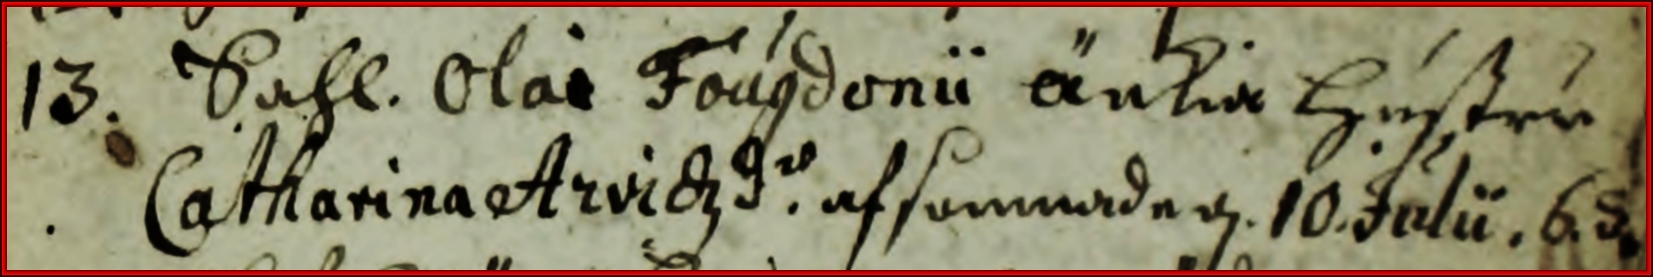 13. Sahl. Olai Fougdonii änkia Hustru
Catharina Arvidz dr. afsomnade 10. Julii. 6.